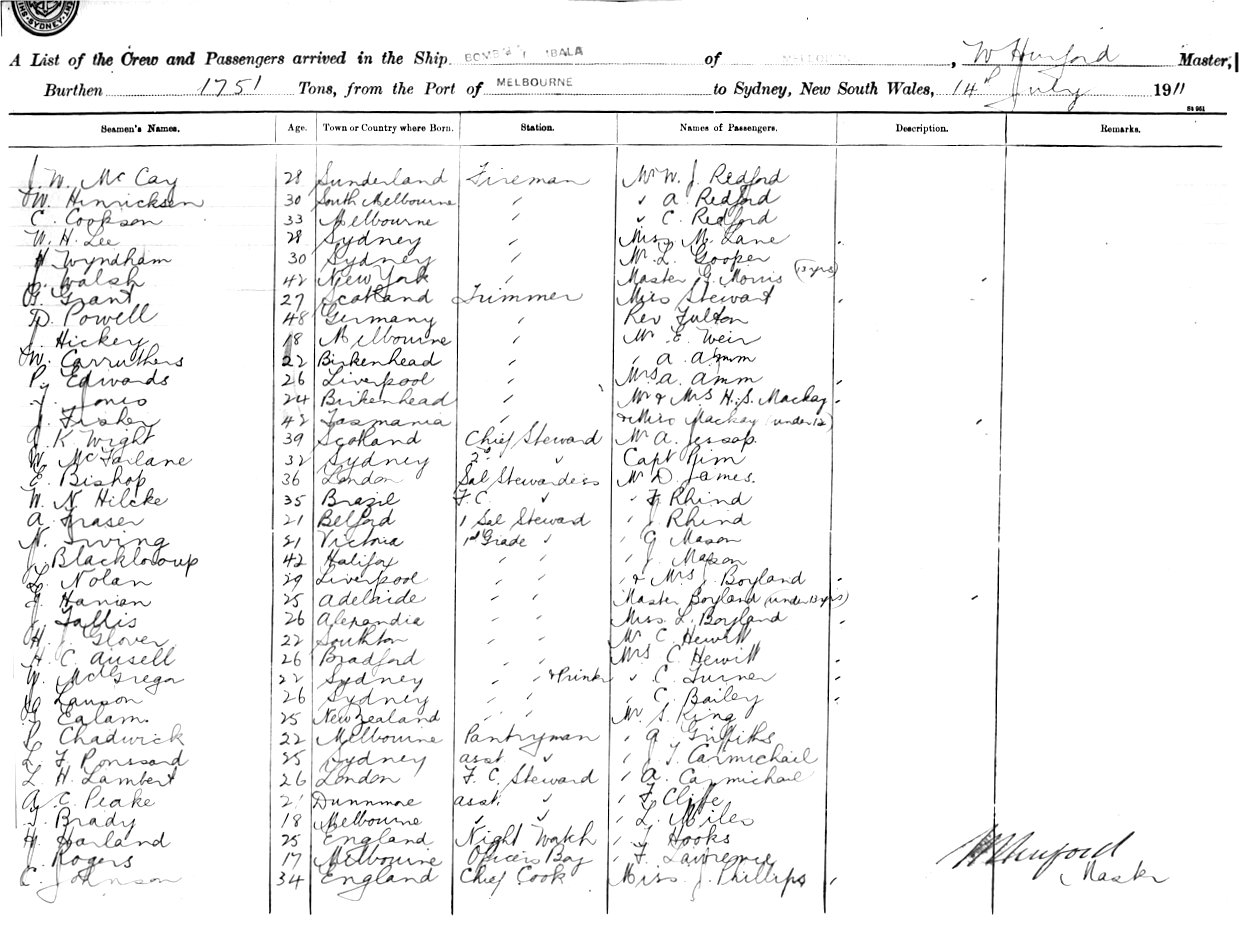 SYDNEY
A List of the Crew and Passengers arrived in the Ship. BOMBALA of , W Hurford Master,
Burthen 1751 Tons, from the Port of MELBOURNE to Sydney, New South Wales, 14th July 1911
Seamen's Names. Age. Town or Country where Born. Station. Names of Passengers. Description. Remarks.
J. W. McCay 28 Sunderland Fireman Mr W. J. Redford
W. Hinricksen 30 South Melbourne " " A Redford
C. Cookson 33 Melbourne " " C. Redford
W. H. Lee 28 Sydney " M. Lane
H Wyndham 30 Sydney " Mr L. Gooper
J. Walsh 42 New York " Master G. Morris (13 yrs)
G. Grant 27 Scotland Trimmer Miss Stewart
D. Powell 48 Germany " Rev Fulton
J. Hickey 18 Melbourne " Mr E. Weir
W. Carruthers 22 Birkenhead " " A Amm
P. Edwards 26 Liverpool " Mrs A. Amm
J. Jones 24 Birkenhead " Mr & Mrs H. S. Mackay
J. Fisher 42 Tasmania " & Miss Mackay (under 12)
J. K Wight 39 Scotland Chief Steward Mr A. Jessop
W. McFarlane 32 Sydney 2nd " Capt Pim
E. Bishop 36 London Sal Stewardess Mr D. James.
W. N. Hilcke 35 Brazil F.C. " " F. Rhind
A. Fraser 21 Belford 1 Sal Steward " J Rhind
N. Irving 21 Victoria 1st Grade " " G Mason
J. 42 Halifax " " " J. Mason
L. Nolan 29 Liverpool " " & Mrs J Boyland
J. Hanian 25 Adelaide " " Master Boyland (under 13 yrs)
J. Tallis 26 Alexandia " " Miss L. Boyland
H. J. Glover 22 Southton " " Mr C. Hewitt
H. C. Ansell 26 Bradford " " Mrs C. Hewitt
W. McGregor 22 Sydney " " & Printer " C. Turner
Lawson 26 Sydney " " " C. Bailey
Ealam. 25 New Zealand " " Mr S. King
L. Chadwick 22 Melbourne Pantryman " A Griffiths
L. F. Ponssard 25 Sydney asst " " J. T. Carmichail
L. H. Lambert 26 London F. C. Steward " A. Carmichael
A. C. Peake 21 Dunnmoe asst. " " F. Cliffe
J. Brady 18 Melbourne " " " L. Miles
H. Harland 25 England Night Watch " J Hooks
J. Rogers 17 Melbourne Officers Boy " F. Lawrence
C. Johnson 34 England Chief Cook Miss J. Phillips
W Hurford
Master